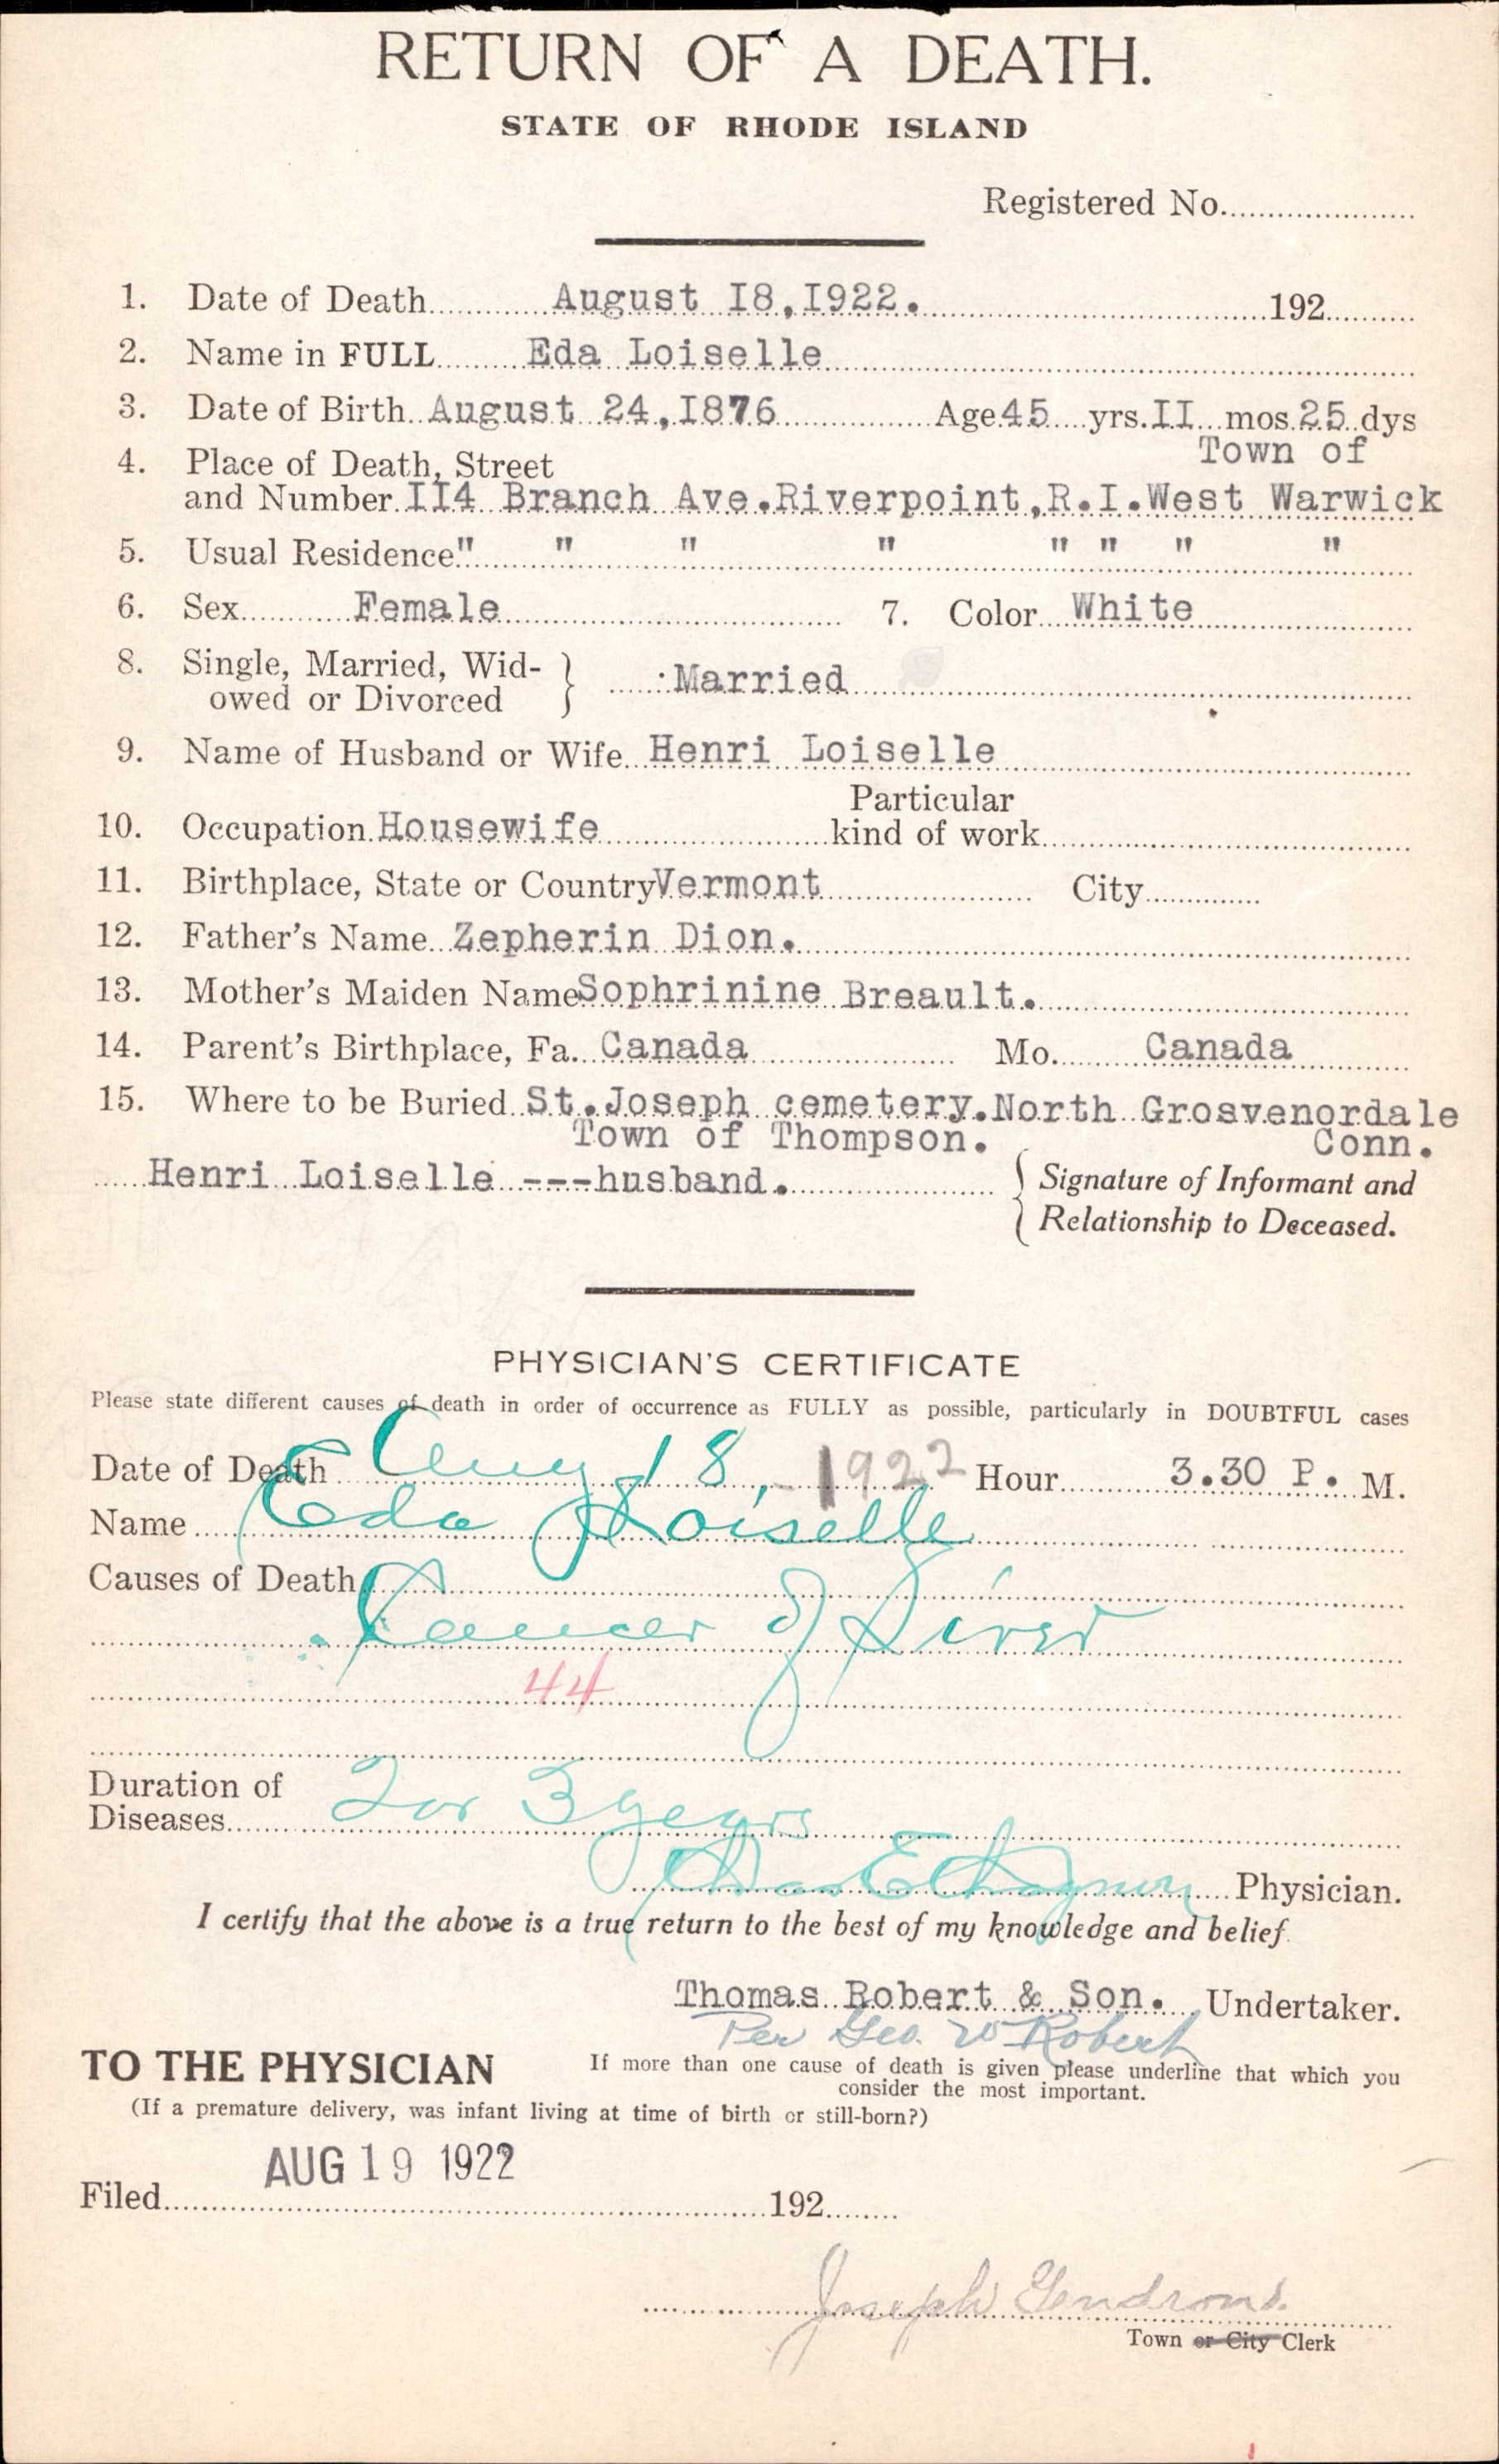 RETURN OF A DEATH.
STATE OF RHODE ISLAND
Registered No.
1. Date of Death August I8,I922. 192
2. Name in FULL Eda Loiselle
3. Date of Birth August 24,I876 Age 45 yrs. II mos. 25 dys
4. Place of Death, Street Town of
and Number II4 Branch Ave.Riverpoint,R.I.West Warwick
5. Usual Residence " " " " " " " "
6. Sex Female 7. Color White
8. Single, Married, Wid-
owed or Divorced } :Married
9. Name of Husband or Wife Henri Loiselle
Particular
10. Occupation Housewife kind of work
11. Birthplace, State or Country Vermont City
12. Father's Name Zepherin Dion.
13. Mother's Maiden Name Sophrinine Breault.
14. Parent's Birthplace, Fa. Canada Mo. Canada
15. Where to be Buried St.Joseph cemetery.North Grosvenordale
Town of Thompson. Conn.
Henri Loiselle ---husband. { Signature of Informant and
Relationship to Deceased.
PHYSICIAN'S CERTIFICATE
Please state different causes of death in order of occurrence as FULLY as possible, particularly in DOUBTFUL cases
Date of Death Aug 18, - 1922 Hour 3.30 P. M.
Name Eda Loiselle
Causes of Death
Cancer of Liver
44
Duration of
Diseases 2 or 3 years
Physician.
I certify that the above is a true return to the best of my knowledge and belief.
Thomas Robert & Son. Undertaker.
Per Geo. W Robert
TO THE PHYSICIAN If more than one cause of death is given please underline that which you
consider the most important.
(If a premature delivery, was infant living at time of birth or still-born?)
AUG 19 1922
Filed 192
Joseph Gendron
Town or City Clerk